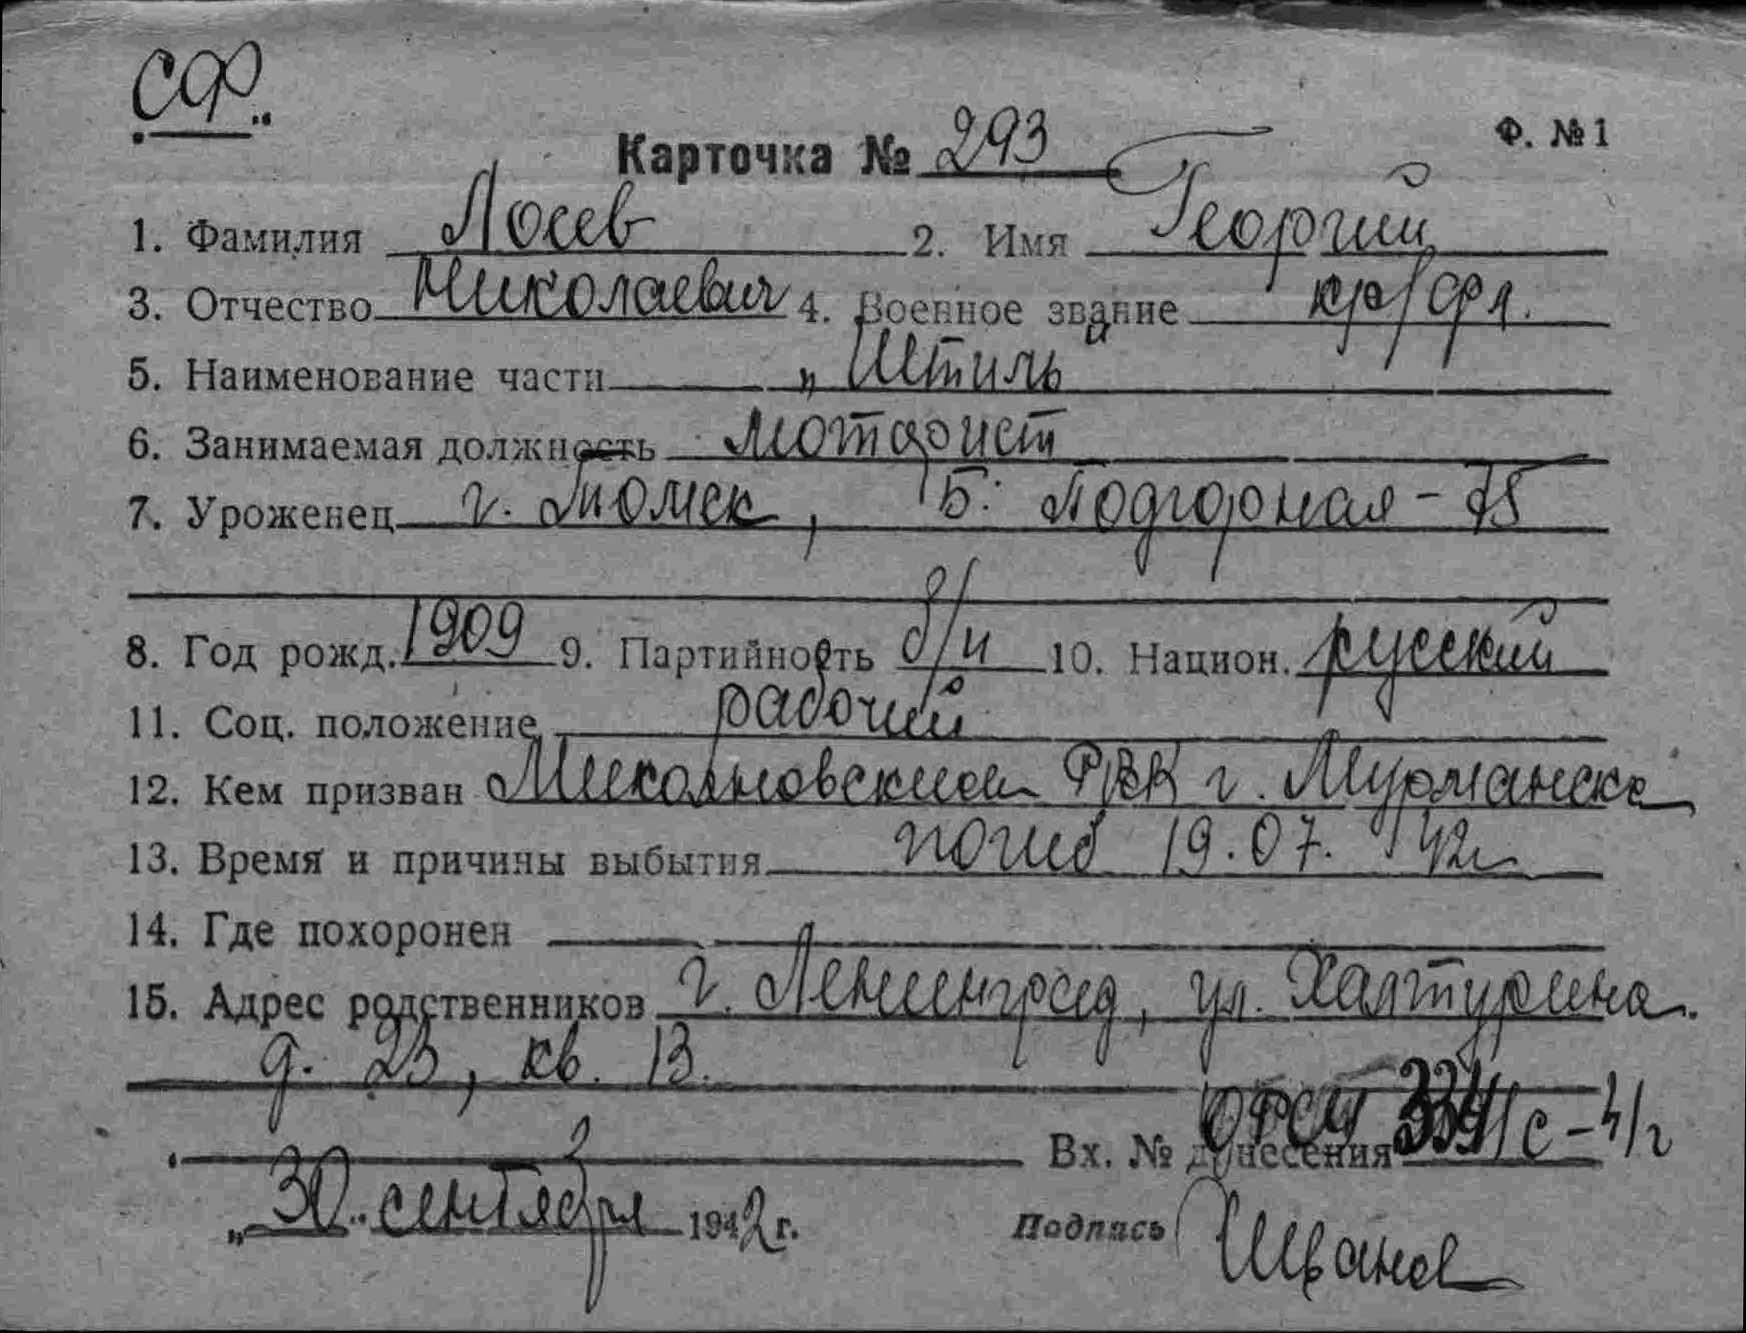 СФ.
Ф. № 1
Карточка № 293
1. Фамилия Лосев 2. Имя Георгий
3. Отчество Николаевич 4. Военное звание кр/фл.
5. Наименование части „Штиль"
6. Занимаемая должность моторист
7. Уроженец г. Томск, Б. Подгорная - 75
8. Год рожд. 1909 9. Партийность б/п 10. Национ. русский
11. Соц. положение рабочий
12. Кем призван Микояновским РВК г. Мурманска
13. Время и причины выбытия погиб 19.07. 42г
14. Где похоронен
15. Адрес родственников г. Ленинград, ул. Халтурина.
д. 23, кв. 13.
Вх. № донесения
„30" сентября 1942 г. Подпись Иванов